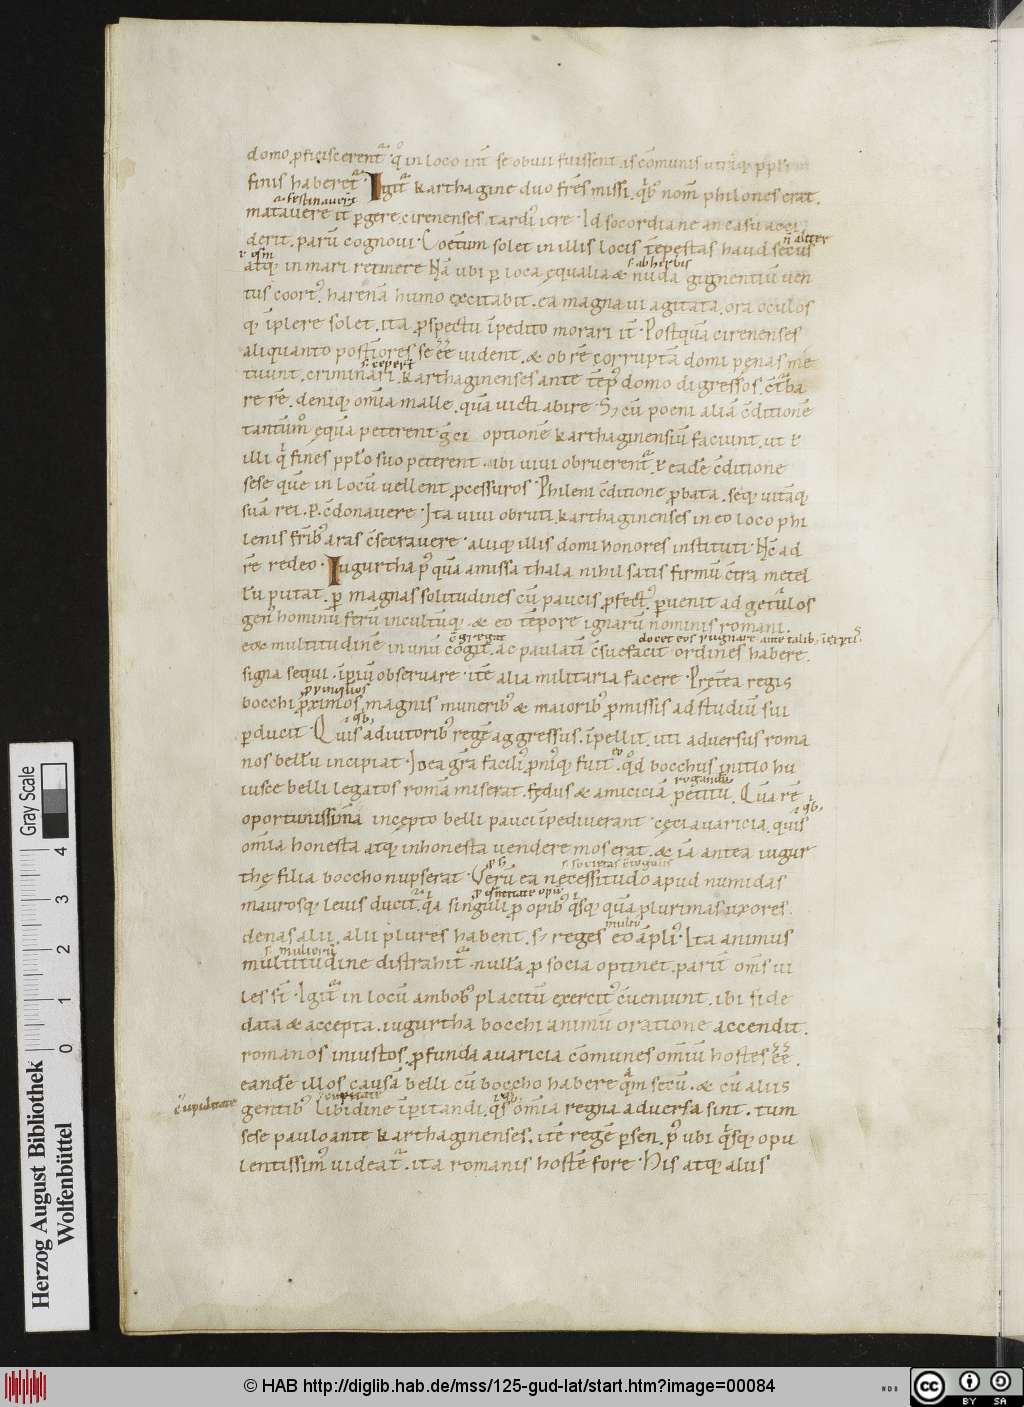 domo ꝓficiscerent᷑ · qͦ in loco int̄ se obuii fuissent . is cōmunis utriq; ppl̄i
finis haberet᷑ . Igit᷑ karthagine duo fr̄es missi . qͥb; nom̄ philones erat .
ł festinaueř
matavere it̄ ꝑgere cirenenses tardi᷒ iere · Id socordia ne an casu acci
derit . parū cognoui · Coetum solet in illis locis tēpestas haud secus
n̄ aliter
atq; in mari retinere Nā ubi ꝑ loca ęqualia & nuda gignentiū uen
s. ab herbis
tus coort᷒ . harenā humo excitabit . ea magna ui agitata . ora oculos
q; īplere solet . ita ꝓspectu īpedito morari it̄ · Postquā cirenenses
aliquanto postiores se ēē uident . & ob rē corruptā domi penas me
s. cepert̄
tuunt . criminari . karthaginenses ante tēp᷒ domo digressos . c̄t᷑ba
re rē . deniq; om̄ia malle . quā victi abire · S; cū poeni aliā c̄ditionē
tantūm̊ ęquā peterent g̊ci optionē karthaginensiū faciunt . ut ł
illi qͥ fines ppl̄o suo peterent . ubi uiui obruerent᷑ . ł eadē c̄ditione
sese quē in locū vellent ꝓcessuros · Phileni c̄ditione ꝓbata . seq; uitāq;
suā rei . p . c̄donavere · Ita vivi obruti . karthaginenses in eo loco phi
lenis fr̄ib; aras c̄secravere · aliiq; illis domi honores instituti · Nc̄ ad
rē redeo · Iugurtha p᷒quā amissa thala nihil satis firmū c̄tra metel
lū putat . ꝑ magnas solitudines cū paucis ꝓfect᷒ . ꝑuenit ad getulos
gen᷒ hominū ferū incultūq; . & eo tēpore ignarū nominis romani .
c̄gregat
docet eos pugnare
eoꝝ multitudinē in unū cogit . ac paulatī c̄suefacit ordines habere .
signa sequi . īꝑiū observare · itē alia militaria facere · Pretea regis
ꝓpinquos
bocchi ꝓximos magnis munerib; & maiorib; ꝓmissis ad studiū sui
i qͥb;
ꝑducit · Quis adiutorib; regē aggressus . īpellit . uti adversus roma
nos bellū incipiat · Id ea gr̄a facili᷒ ꝓni᷒q; fuit . qͦd bocchus initio hu
rogandū
iusce belli legatos romā miserat . fędus & amiciciā petitū . Quā rē
i qͥb;
oportunissimā incepto belli pauci īpediverant . cęci avaricia . quis
om̄ia honesta atq; inhonesta vendere mos erat . & iā antea iugur
s. societas c̄iugalis
thę filia boccho nupserat · Verū ea necessitudo apud numidas
maurosq; levis ducit᷑ . qͥa singuli ꝓ opib; qͥsq; quā plurimas uxores .
multo
denas alii . alii plures habent . s; reges eo āpli᷒ · Ita animus
s. mulierū
multitudine distrahit᷑ · nulla ꝓ socia optinet . parit̄ om̄s ui
les sī̄ · Igit᷑ in locū ambob; placitū exercit᷒ c̄veniunt . ibi fide
data & accepta . iugurtha bocchi animū oratione accendit .
romanos iniustos . ꝓfunda avaricia cōmunes om̄iū hostes ēē .
eandē illos causā belli cū boccho habere qͣm secū . & cū aliis
cupiditate
gentib; libidine īꝑitandi . qͥs om̄ia regna adversa sint . tum
sese paulo ante karthaginenses . itē regē ꝑsen . p᷒ ubi qͥsq; opu
lentissim᷒ uideat᷑ . ita romanis hostē fore · His atq; aliis
Gray Scale
0 1 2 3 4
Herzog August Bibliothek
Wolfenbüttel
© HAB http://diglib.hab.de/mss/125-gud-lat/start.htm?image=00084
cc BY SA